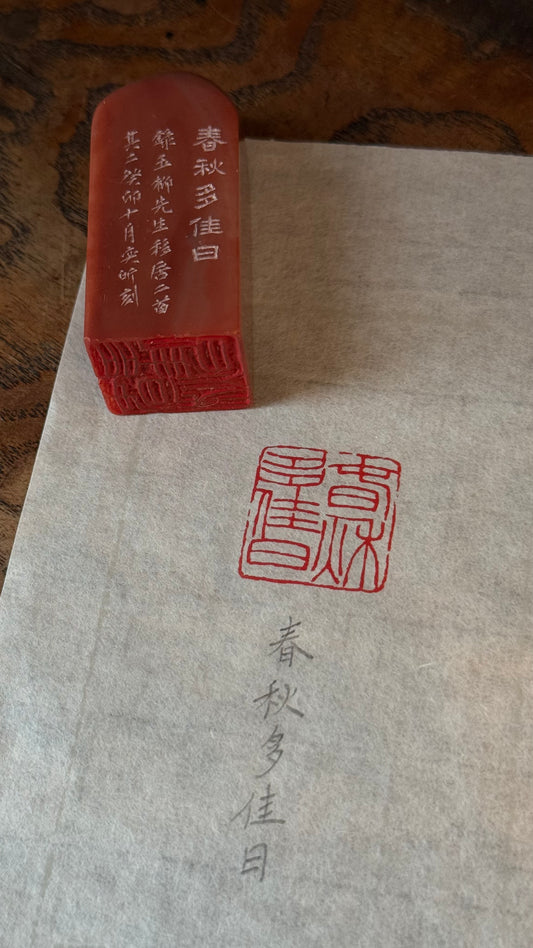 春秋多佳日
錄五柳先生移居二首
其二癸卯十月奕昕刻
春秋多佳日
春秋多佳日